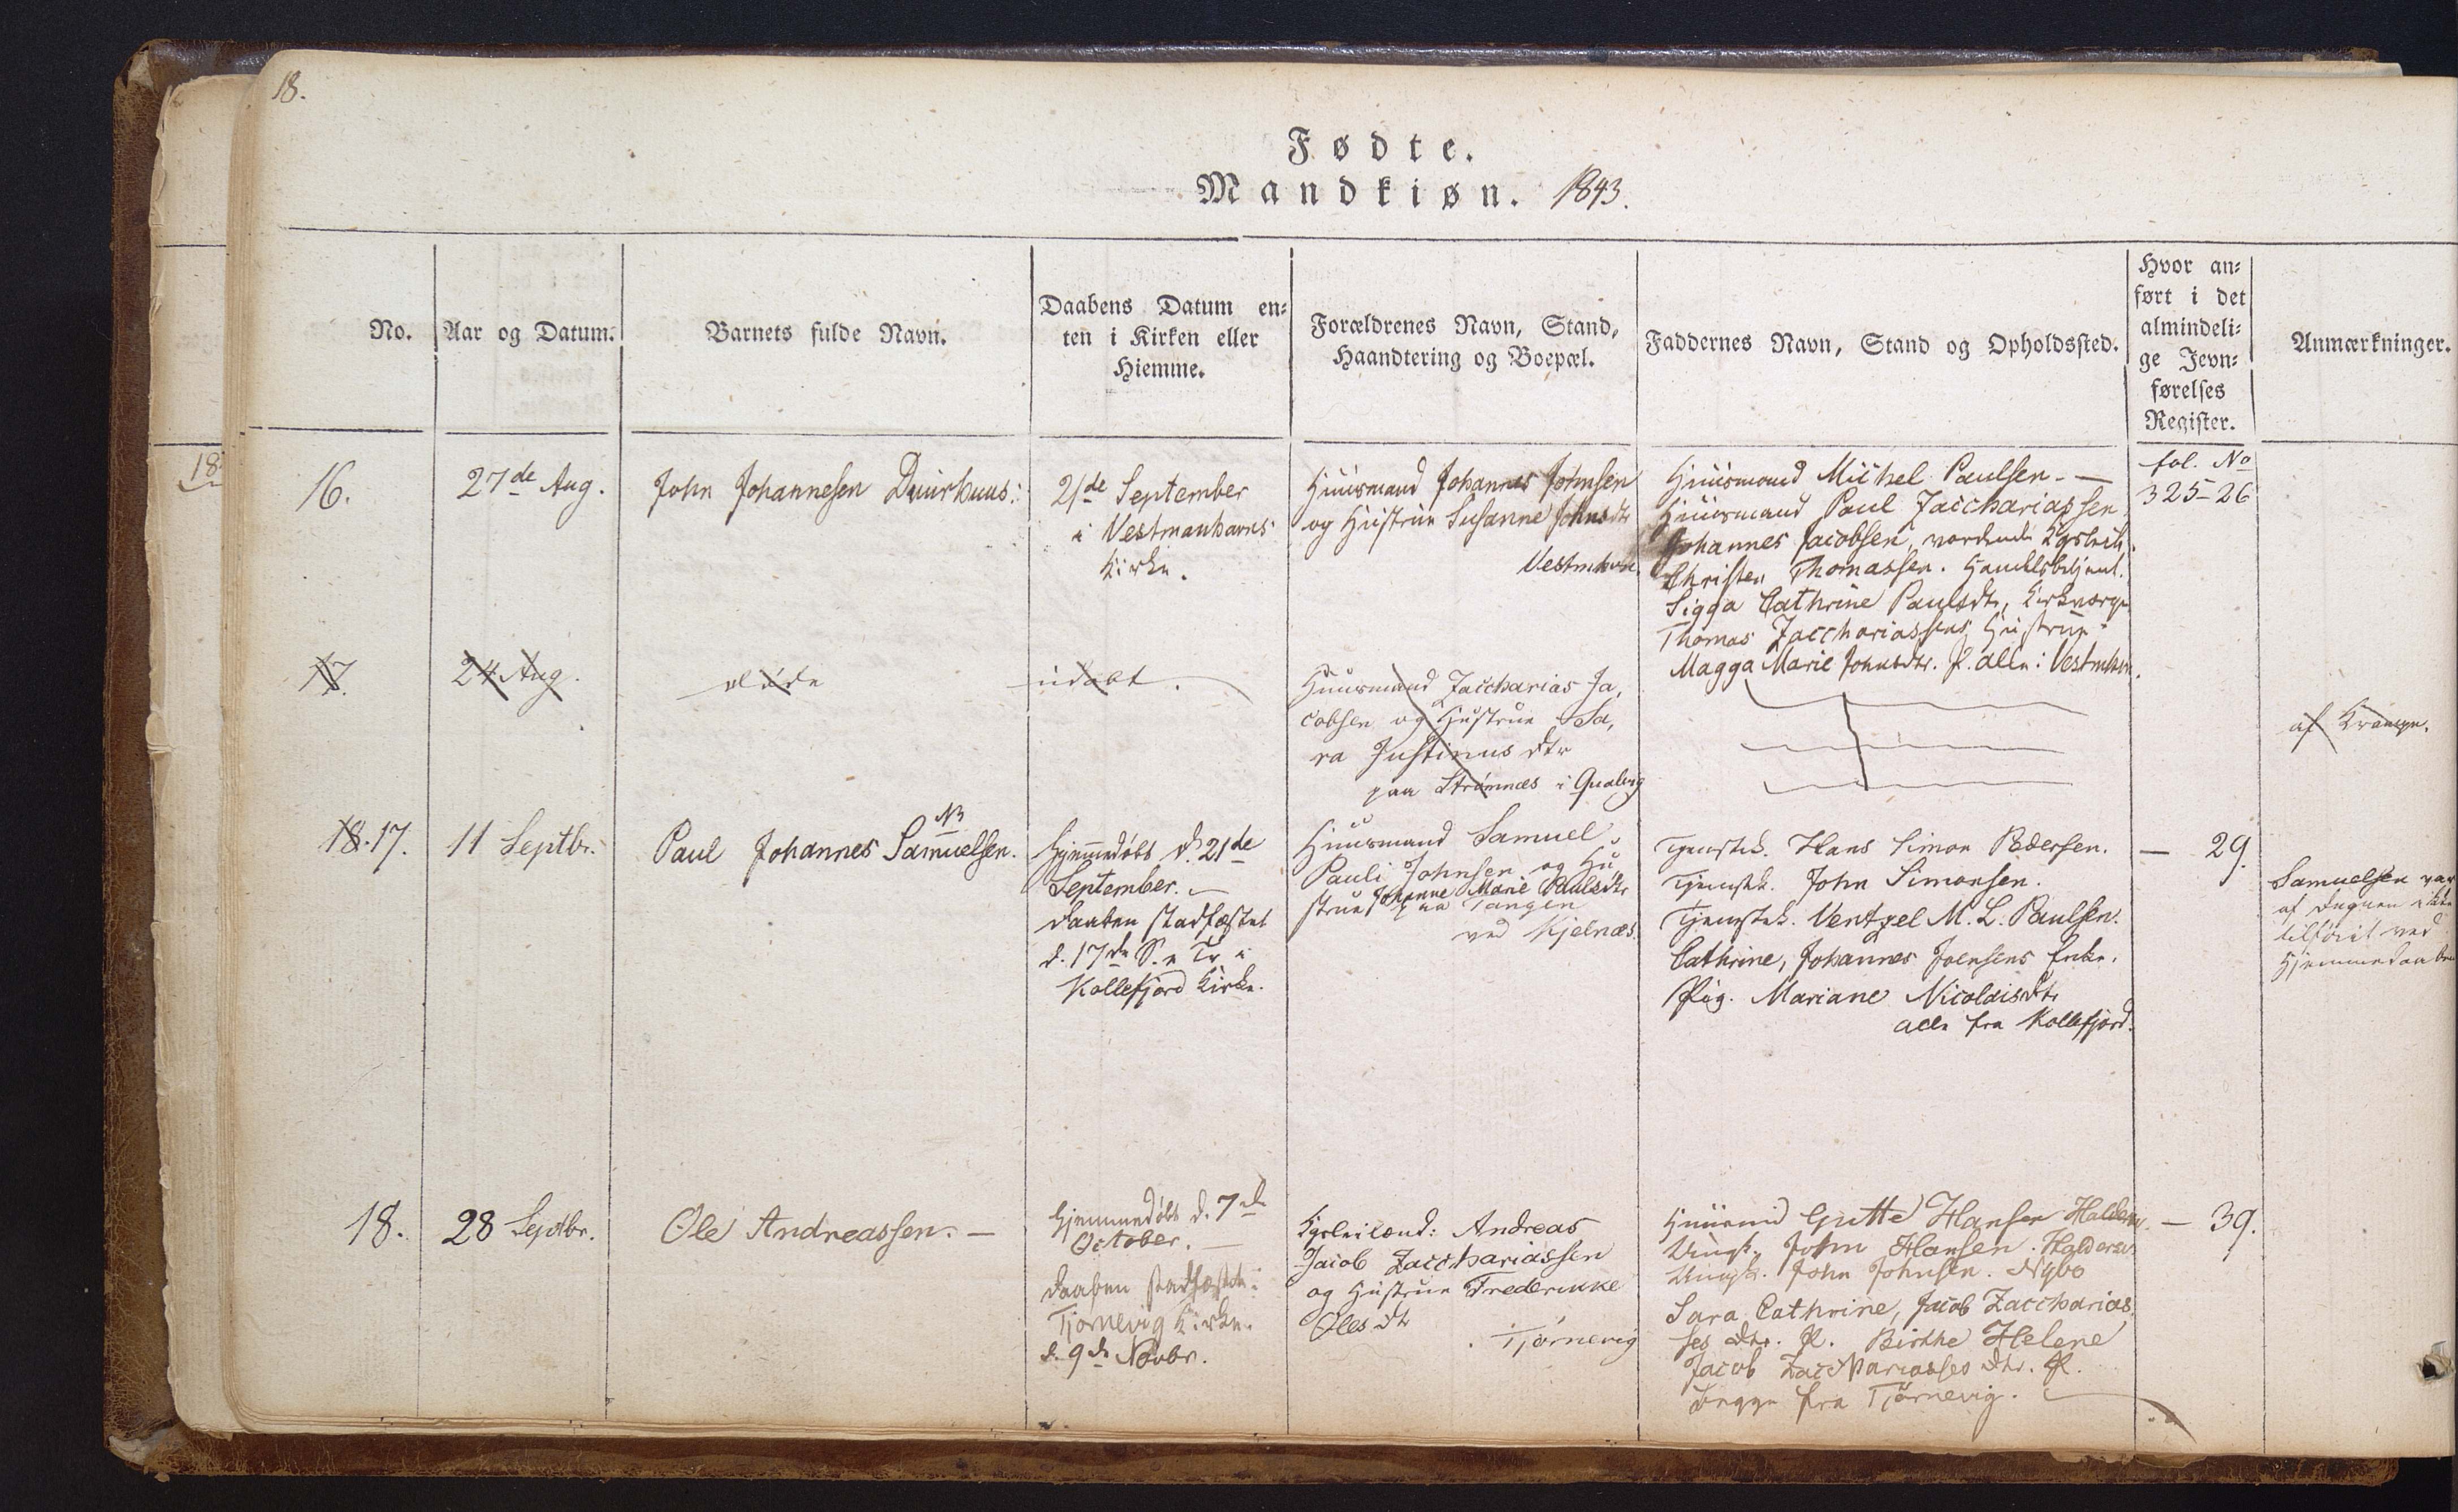 18.
Fødte.
Mandkiøn. 1843.
No.
Aar og Datum.
Barnets fulde Navn.
Daabens Datum en-
ten i Kirken eller
Hiemme.
Forældrenes Navn, Stand,
Haandtering og Boepæl.
Faddernes Navn, Stand og Opholdssted.
Hvor an-
ført i det
almindeli-
ge Jevn-
førelses
Register.
Anmærkninger.
18
16.
27de Aug.
John Johannesen Duurhuus:
21de September
i Vestmanhavns
Kirke.
Huusmand Johannes Johnsen
og Hustrue Susanne Johnsdtr
Vestmhvn.
Huusmand Michel Paulsen. —
Huusmand Paul Zacchariassen
Johannes Jacobsen, vordende
Christen Thomassen. Handelsbetjent.
Sigga Cathrine Paulsdtr, Kirkværge
Thomas Zacchariassens Hustrue
Magga Marie Johnsdtr. P. alle i Vestmhvn.
fol. No
325-26
17.
24 Aug.
døde
udøbt.
Huusmand Zaccharias Ja,
cobsen og Hustrue Sa,
ra Justinus dtr
paa Strømnæs i Qualvig
af Krampe.
18. 17.
11 Septbr.
NB
Paul Johannes Samuelsen.
Hjemmedøbt d. 21de
September. —
Daaben stadfæstet
d. 17de S. e Tr i
Kollefjord Kirke.
Huusmand Samuel
Pauli Johnsen og Hu
strue Johanne Marie Paulsdtr
paa Tangen
ved Kjelnæs.
Tjenestek. Hans Simon Pedersen.
Tjenestek. John Simonsen.
Tjenestek. Ventzel M. L. Paulsen.
Cathrine, Johannes Joensens Enke.
Pig. Mariane Nicolaisdtr
alle fra Kollefjord.
— 29.
Samuelsen var
af Degnen ikke
tilføiet ved
Hjemmedaaben
18.
28 Septbr.
Ole Andreassen. —
Hjemmedøbt d. 7de
October. —
Daaben stadfæstet i
Tjørnevig Kirke.
d. 9de Novbr.
Andreas
Jacob Zacchariassen
og Hustrue Frederikke
Olesdtr
Tjørnevig
Huusmd Gutte Hansen Haldersv.
Ungk. John Hansen. Haldersv.
Ungk. John Johnsen. Nybo
Sara Cathrine, Jacob Zaccharias
ses dtr. P. Birthe Helene
Jacob Zacchariasses dtr. P.
begge fra Tjørnevig.
— 39.